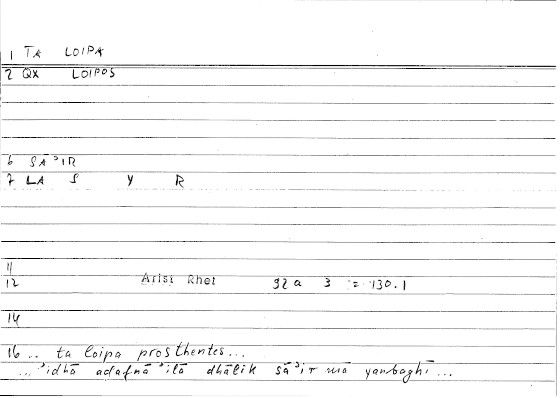 1 TA LOIPA
2 QX LOIPOS
6 SĀʾIR
7 LA S Y R
11
12 Arist Rhet 92a 3 = 130.1
14
16 .. ta loipa prosthentes...
...ʾidhā aḍafnā ʾilā dhālik sāʾir mā yanbaghī...